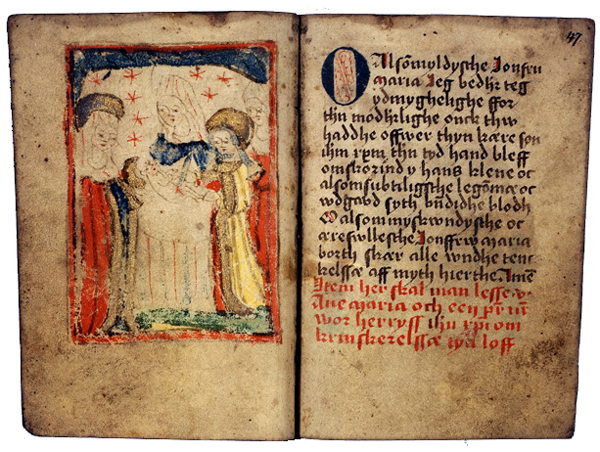 47
O Alsomyldysche Ionfru
maria Ieg bedhr teg
ydmyghelighe ffor
thn modhrlighe onck thw
haddhe offwer thyn kære søn
ihm xpm thn tyd hand bleff
omskorind y hans klene oc
alsomsubtiligsche legomæ oc
wdgavd syth bndidhe blodh
O alsommyskwndysche oc
æresfwllesche Ionffrw maria
borth skær alle wndhe tenc
kelssæ aff myth hierthe. Amē
Item her skal man lesse
Aue maria och een pr nr
wor herryss ihu xpi om
krinskerelssæ loff